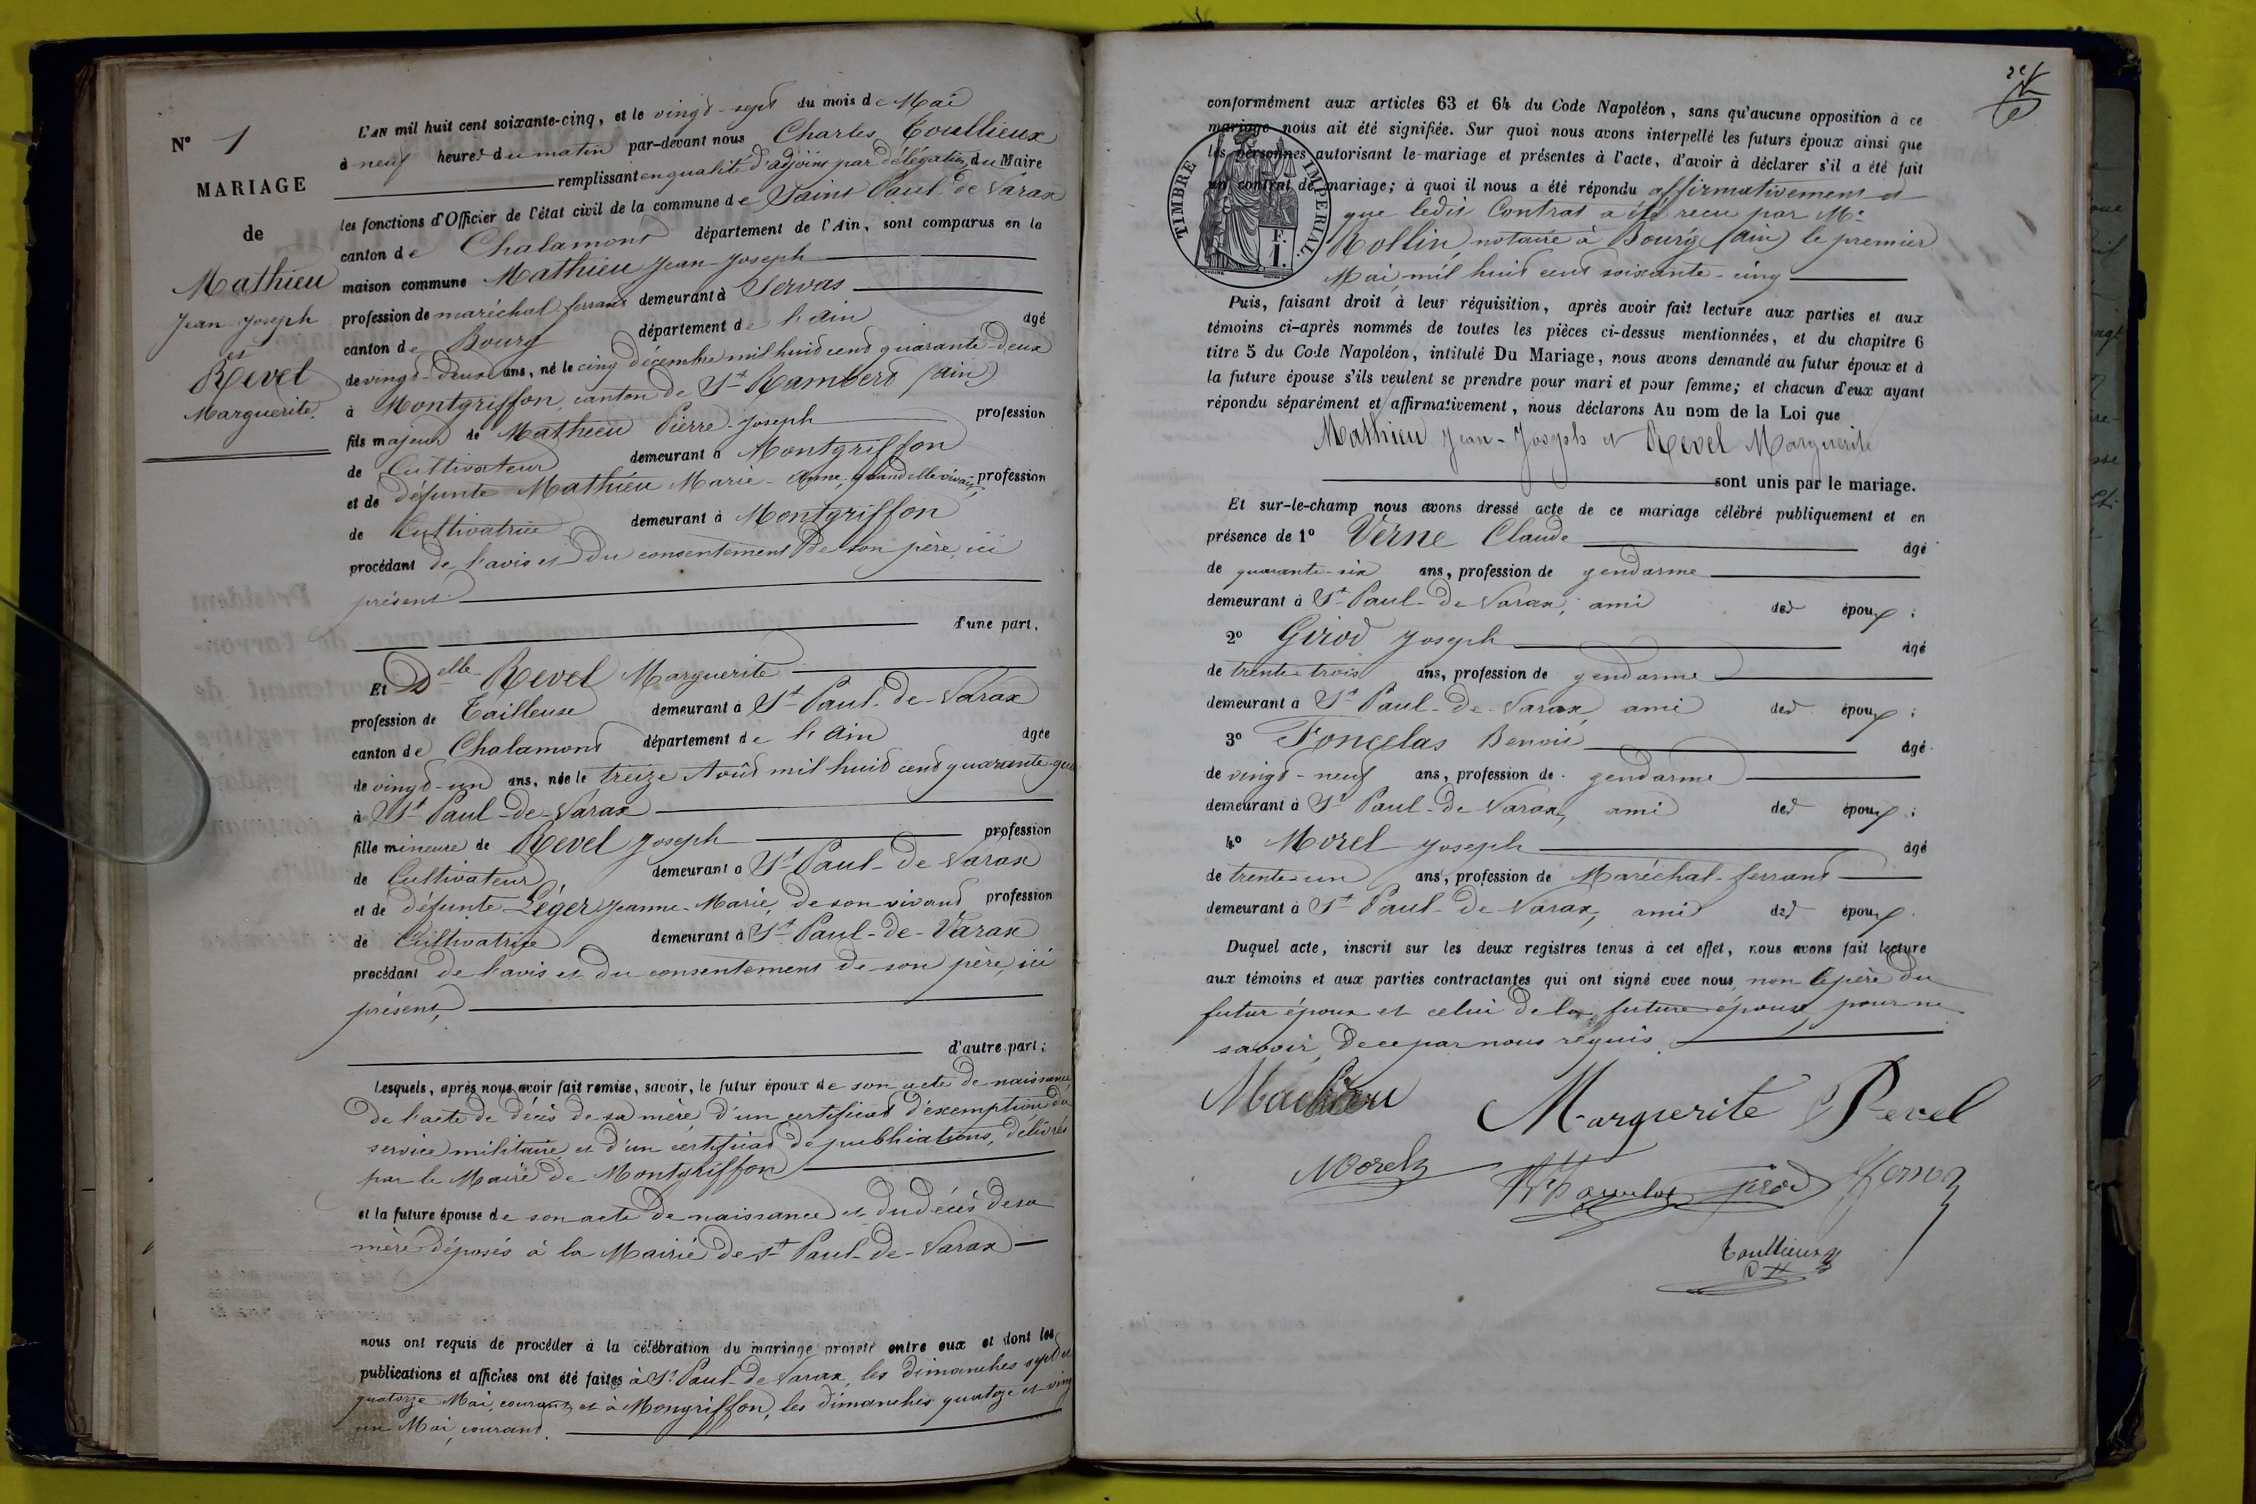 N° 1
MARIAGE
de
Mathieu
Jean-Joseph
et
Revel
Marguerite.
L'AN mil huit cent soixante-cinq, et le vingt-sept du mois de Mai
à neuf heures du matin par-devant nous Charles Toullieux
remplissant en qualité d'adjoint par délégation du Maire
les fonctions d'Officier de l'état civil de la commune de Saint Paul de Varax
canton de Chalamont département de l'Ain, sont comparus en la
maison commune Mathieu Jean-Joseph
profession de maréchal ferrant demeurant à Servas
canton de Bourg département de l'Ain âgé
de vingt-deux ans, né le cinq décembre mil huit cent quarante-deux
à Montgriffon, canton de St Rambert (Ain)
fils majeur de Mathieu Pierre-Joseph profession
de Cultivateur demeurant à Montgriffon
et de défunte Mathieu Marie-Anne, quand elle vivait, profession
de Cultivatrice demeurant à Montgriffon
procédant de l'avis et du consentement de son père, ici
présent
d'une part,
Et Delle Revel Marguerite
profession de Tailleuse demeurant à St Paul-de-Varax
canton de Chalamont département de l'Ain âgée
de vingt-un ans, née le treize Août mil huit cent quarante-qua
à St Paul-de-Varax
fille mineure de Revel Joseph profession
de Cultivateur demeurant à St Paul-de-Varax
et de défunte Léger Jeanne-Marie, de son vivant profession
de Cultivatrice demeurant à St Paul-de-Varax
procédant de l'avis et du consentement de son père, ici
présent,
d'autre part;
Lesquels, après nous avoir fait remise, savoir, le futur époux de son acte de naissance
de l'acte de décès de sa mère, d'un certificat d'exemption du
service militaire et d'un certificat de publications, délivrés
par le Maire de Montgriffon
et la future épouse de son acte de naissance et du décès de sa
mère déposés à la Mairie de St Paul-de-Varax
nous ont requis de procéder à la célébration du mariage projeté entre eux et dont les
publications et affiches ont été faites à St Paul-de Varax, les dimanches sept et
quatorze Mai, courant, et à Mongriffon, les dimanches quatorze et vingt
un Mai, courant.
conformément aux articles 63 et 64 du Code Napoléon, sans qu'aucune opposition à ce
mariage nous ait été signifiée. Sur quoi nous avons interpellé les futurs époux ainsi que
les personnes autorisant le mariage et présentes à l'acte, d'avoir à déclarer s'il a été fait
un contrat de mariage; à quoi il nous a été répondu affirmativement et
que ledit Contrat a été reçu par Me
Rollin, notaire à Bourg (Ain) le premier
Mai, mil huit cent soixante-cinq
TIMBRE IMPERIAL
1 F.
Puis, faisant droit à leur réquisition, après avoir fait lecture aux parties et aux
témoins ci-après nommés de toutes les pièces ci-dessus mentionnées, et du chapitre 6
titre 5 du Code Napoléon, intitulé Du Mariage, nous avons demandé au futur époux et à
la future épouse s'ils veulent se prendre pour mari et pour femme; et chacun d'eux ayant
répondu séparément et affirmativement, nous déclarons Au nom de la Loi que
Mathieu Jean-Joseph et Revel Marguerite
sont unis par le mariage.
Et sur-le-champ nous avons dressé acte de ce mariage célébré publiquement et en
présence de 1° Verne Claude âgé
de quarante-six ans, profession de gendarme
demeurant à St Paul-de Varax, ami des époux;
2° Girod Joseph âgé
de trente-trois ans, profession de gendarme
demeurant à St Paul-de-Varax, ami des époux;
3° Foncelas Benoit âgé
de vingt-neuf ans, profession de gendarme
demeurant à St Paul-de Varax, ami des époux;
4° Morel Joseph âgé
de trente-un ans, profession de Maréchal-ferrant
demeurant à St Paul-de Varax, ami des époux
Duquel acte, inscrit sur les deux registres tenus à cet effet, nous avons fait lecture
aux témoins et aux parties contractantes qui ont signé avec nous, non le père du
futur époux et celui de la future épouse, pour ne
savoir, de ce par nous requis.
Mathieu Marguerite Revel
Morel Girod Verne
Toullieux